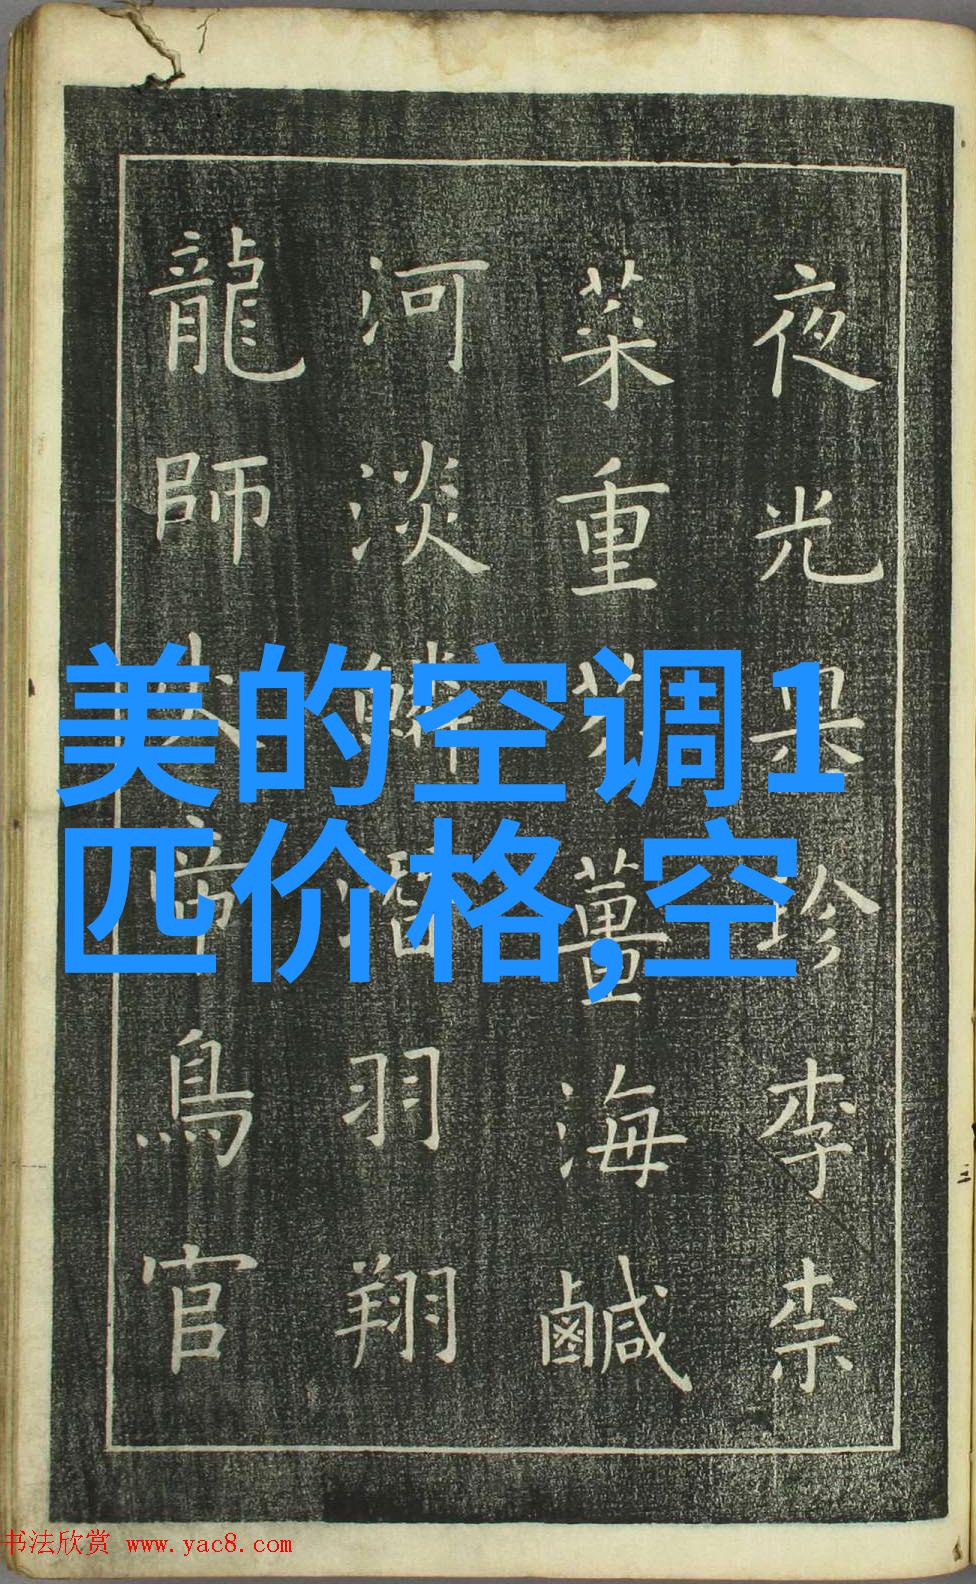 夜光果珍李柰
菜重芥薑海鹹
河淡鱗潛羽翔
龍師火帝鳥官
美的空调1
匹价格,空
书法欣赏 www.yac8.com